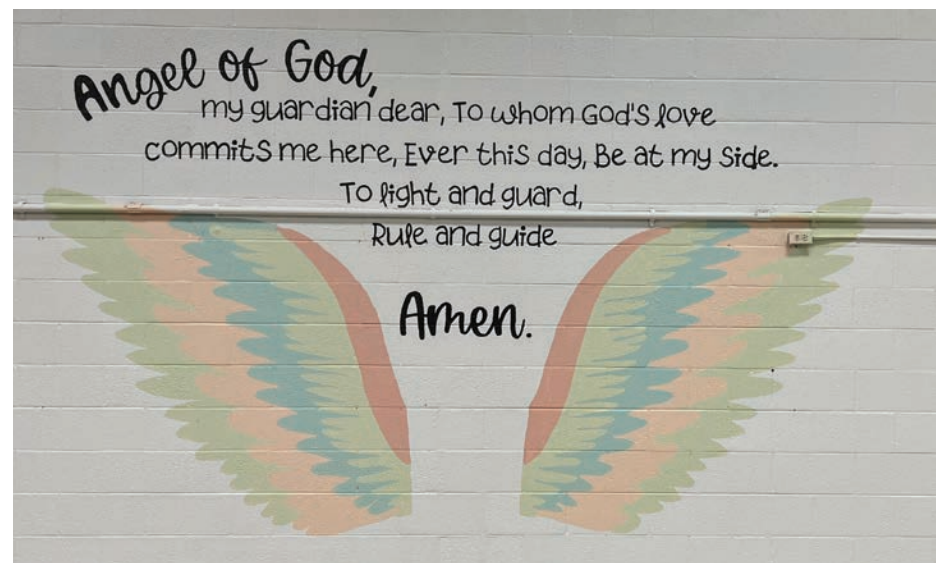 Angel of God,
my guardian dear, To whom God's love
commits me here, Ever this day, Be at my side.
To light and guard,
Rule and guide
Amen.